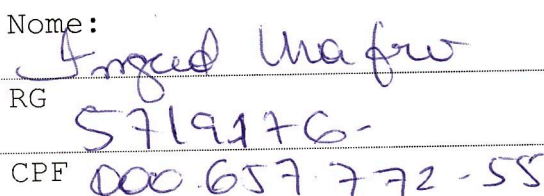 Nome:
Ingrid Mafra
RG
5719176-
CPF 000.657.772-55